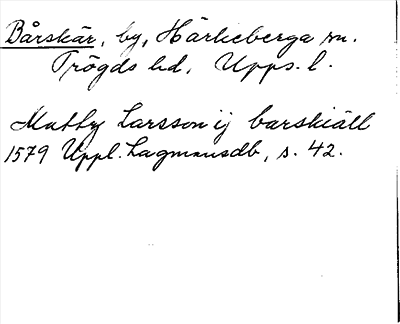 Bårskär, by, Härkeberga sn.
Trögds hd, Upps. l.
Matthz Larsson ij barskiäll
1579 Uppl. Lagmansdb, s. 42.